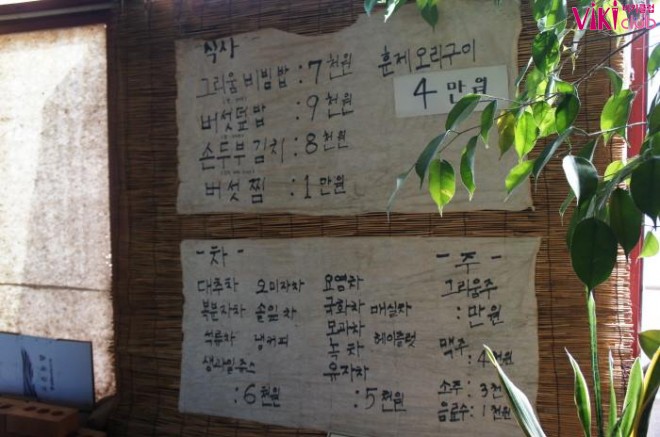 식사
그리움 비빔밥 : 7천원
버섯덮밥 : 9천원
손두부김치 : 8천원
버섯찜 : 1만원
훈제 오리구이
4만원
- 차 -
대추차 오미자차
복분자차 솔잎차
석류차 냉커피
생과일주스
: 6천원
요영차
국화차 매실차
모과차
녹차 헤이즐럿
유자차
: 5천원
- 주 -
그리움주
: 만원
맥주 : 4천원
소주 : 3천
음료수 : 1천원
ViKi club